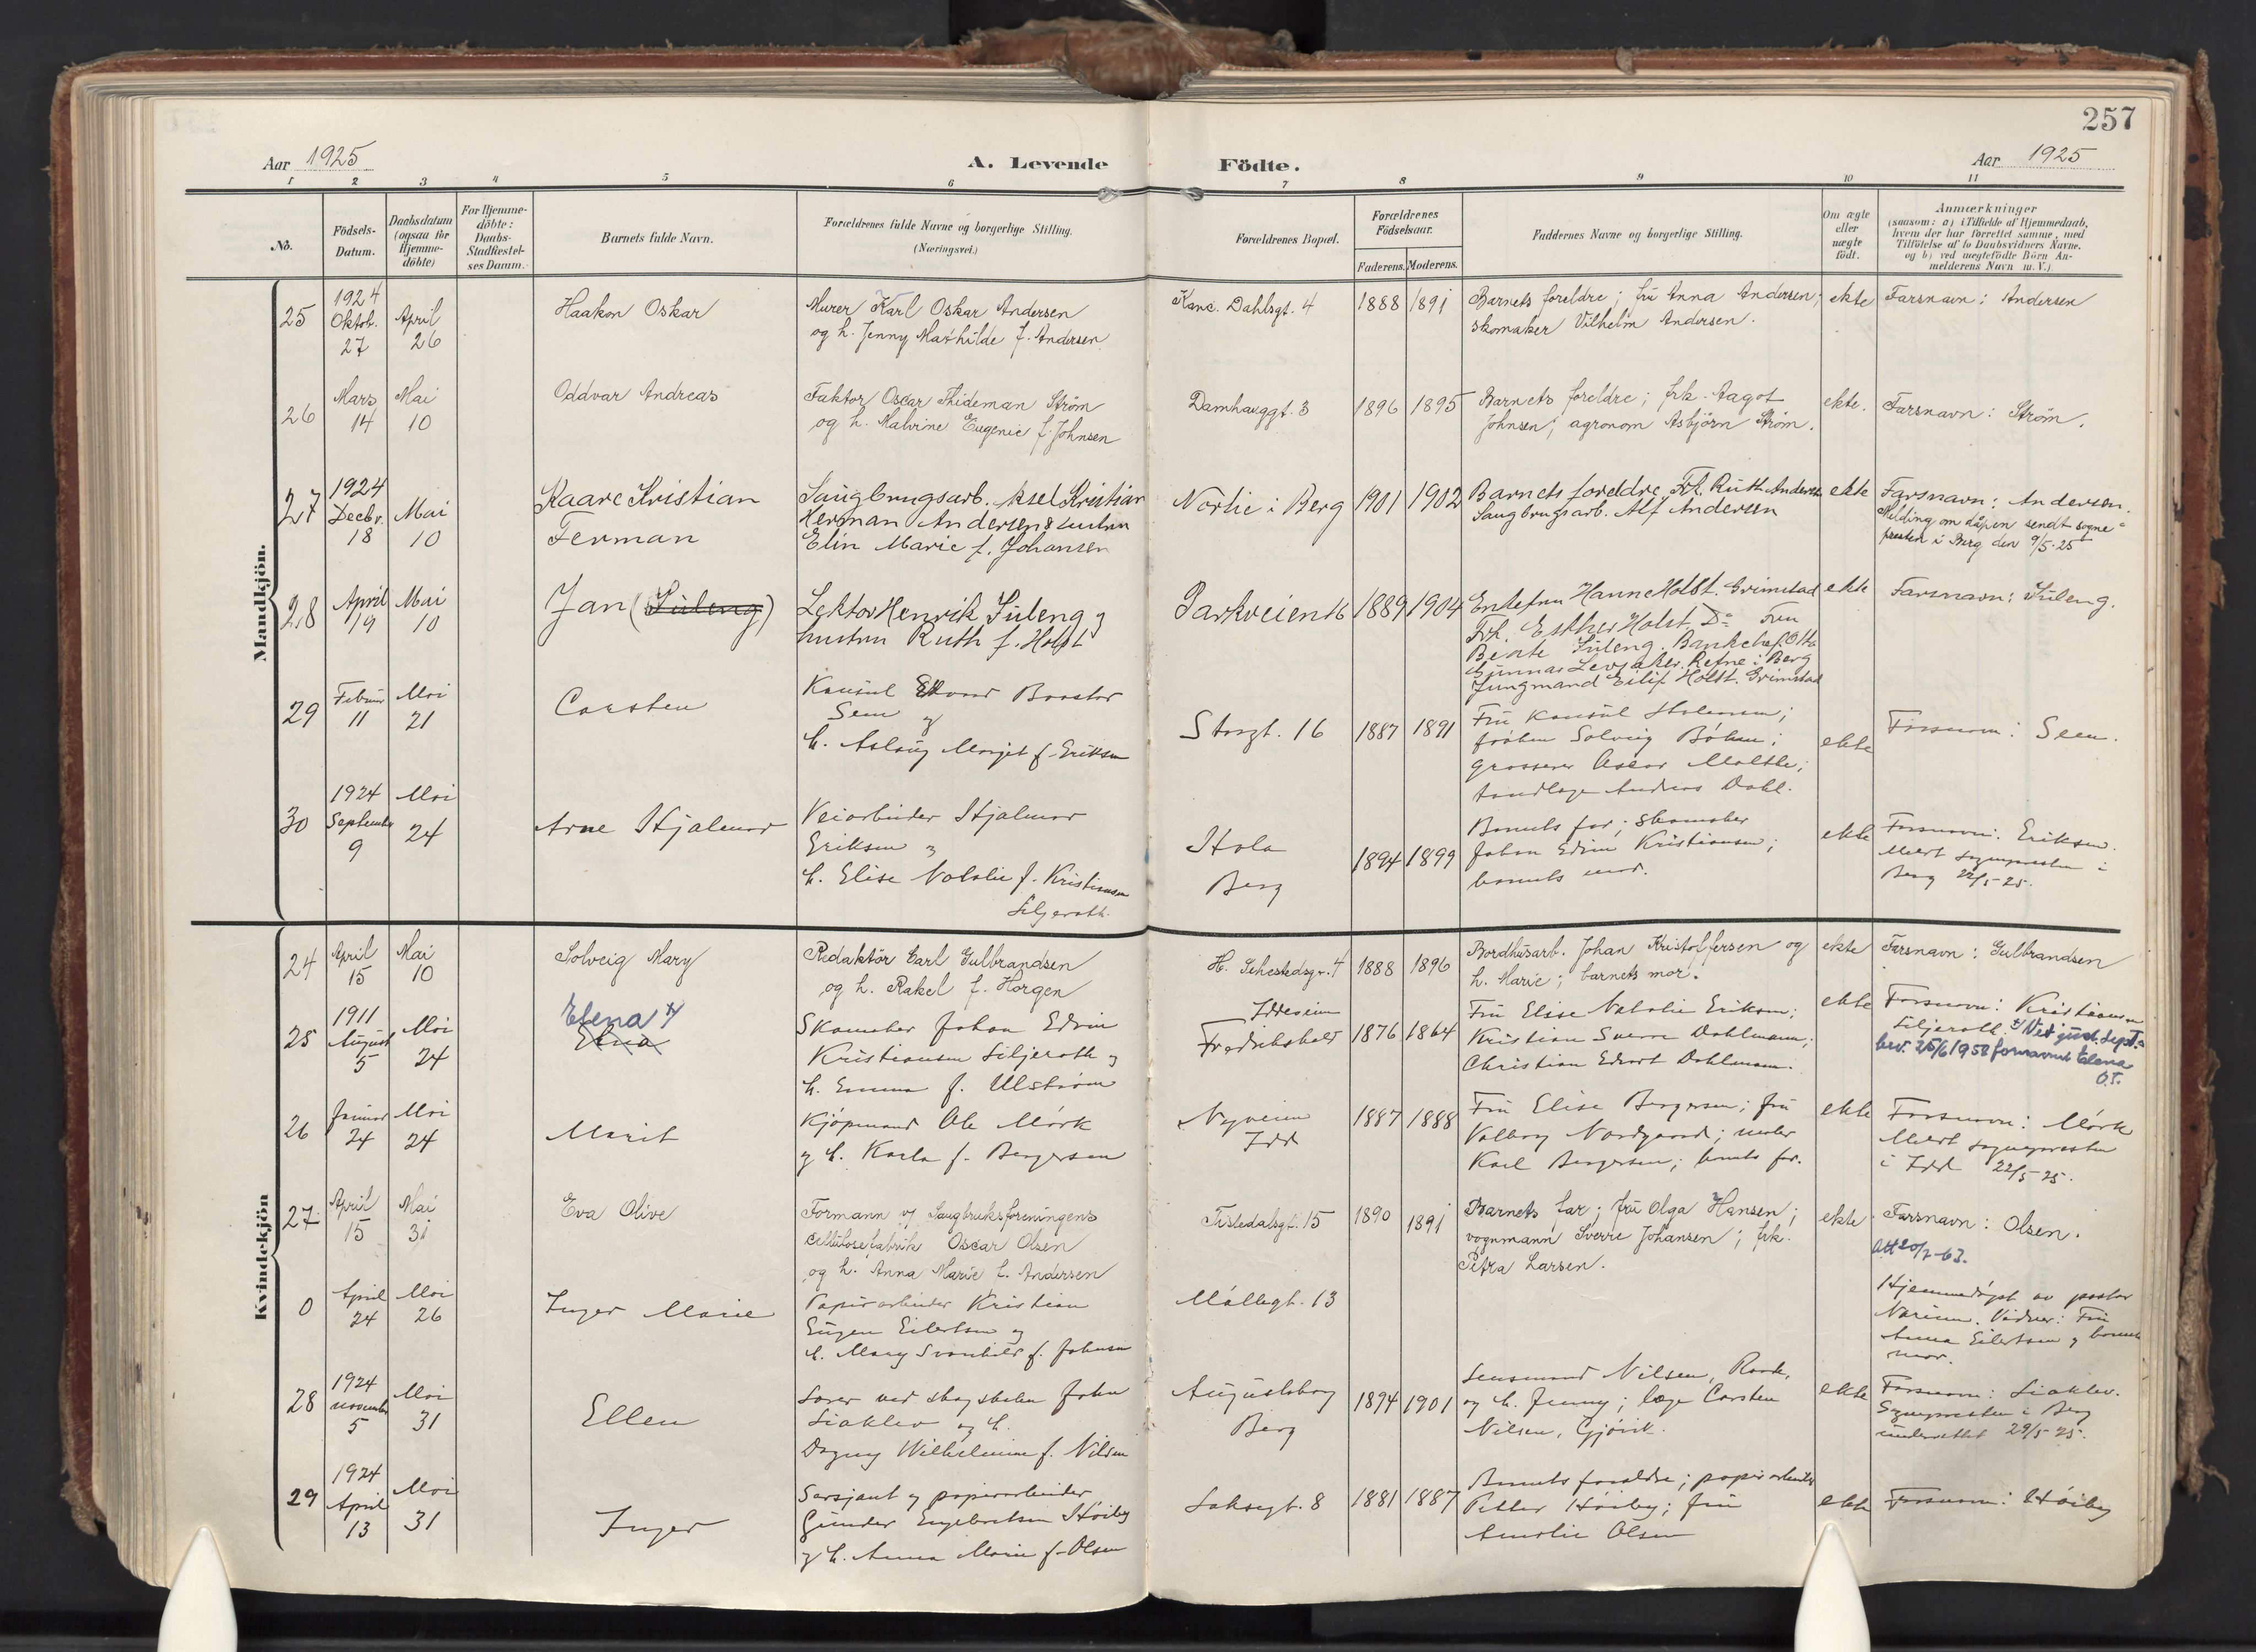 257
Aar 1925
A. Levende
Födte.
Aar 1925
1 2 3 4 5 6 7 8 9 10 11
No.
Födsels-
Datum.
Daabsdatum
(ogsaa for
Hjemme-
döbte)
For Hjemme-
döbte:
Daabs-
Stadfæstel-
ses Datum.
Barnets fulde Navn.
Forældrenes fulde Navne og borgerlige Stilling.
(Næringsvei.)
Forældrenes Bopæl.
Forældrenes
Födselsaar.
Faderens.
Moderens.
Faddernes Navne og borgerlige Stilling.
Om ægte
eller
uægte
födt.
Anmærkninger
(saasom: a) i Tilfælde af Hjemmedaab,
hvem der har forrettet samme, med
Tilföielse af to Daabsvidners Navne.
og b) ved uægtefödte Börn An-
melderens Navn m. V.).
Mandkjön.
25
1924
Oktob.
27
April
26
Haakon Oskar
Murer Karl Oskar Andersen
og h. Jenny Mathilde f. Andersen
Kanc. Dahlsgt. 4
1888 1891
Barnets foreldre; fru Anna Andersen;
skomaker Vilhelm Andersen.
ekte
Farsnavn: Andersen
26
Mars
14
Mai
10
Oddvar Andreas
Faktor Oscar Thideman Ström
og h. Malvine Eugenie f. Johnsen
Damhauggt. 3
1896 1895
Barnets foreldre; frk. Aagot
Johnsen; agronom Asbjörn Ström.
ekte.
Farsnavn: Ström.
27
1924
Decbr.
18
Mai
10
Kaare Kristian
Ferman
Saugbrugsarb. Aksel Kristian
Herman Andersen & hustru
Elin Marie f. Johansen
Norlie i Berg
1901 1902
Barnets foreldre, Frk. Ruth Andersen
Saugbrugsarb. Alf Andersen
ekte
Farsnavn: Andersen.
Melding om dåpen sendt sogne-
presten i Berg den 9/5-25
28
April
19
Mai
10
Jan (Süleng)
Lektor Henrik Süleng og
hustru Ruth f. Holst
Parkveien 16
1889 1904
Enkefru Hanne Holst. Grimstad
Frk. Esther Holst Do Fru
Beate Süleng. Bankchef Otto
Gunnar Levsaker. Refne i Berg
Jungmand Eilif Holst. Grimstad
ekte
Farsnavn: Süleng.
29
Februar
11
Mai
21
Carsten
Konsul Edvard Baastad
Seen og
h. Aslaug Margit f. Eriksen
Storgt. 16
1887 1891
Fru konsul
fröken Solveig Böhm;
grosserer Oscar Molthe;
tandlæge Andreas Dahl.
ekte
Farsnavn: Seen.
30
1924
September
9
Mai
24
Arne Hjalmar
Veiarbeider Hjalmar
Eriksen og
h. Elise Natalie f. Kristiansen
Liljeroth.
Hola
Berg
1894 1899
Barnets far; skomaker
Johan Edvin Kristiansen;
barnets mor.
ekte
Farsnavn: Eriksen.
Meldt sogнepresten i
Berg 22/5-25.
Kvindekjön
24
April
15
Mai
10
Solveig Mary
Redaktör Carl Gulbrandsen
og h. Rakel f. Horgen
H. Sehestedsgt. 4
1888 1896
Bordhusarb. Johan Kristoffersen og
h. Marie; barnets mor.
ekte
Farsnavn: Gulbrandsen
25
1911
August
5
Mai
24
Elena x)
Elna
Skomaker Johan Edvin
Kristiansen Liljeroth og
h. Emma f. Ulström
Iddeveien
Fredrikshald
1876 1864
Fru Elise Natalie Eriksen;
Kristian Sverre Dahlmann;
Christian Edvart Dahlmann.
ekte
Farsnavn: Kristiansen
Liljeroth. x) Ved just. dept.s
bev. 25/6 1958 fornavnet Elena
O.T.
26
Januar
24
Mai
24
Marit
Kjöpmand Ole Mörk
og h. Karla f. Bergersen
Nyveien
Idd
1887 1888
Fru Elise Bergersen; fru
Valborg Nordgaard; maler
Karl Bergersen; barnets far.
ekte
Farsnavn: Mörk
Meldt sognepresten
i Idd 22/5-25.
27
April
15
Mai
31
Eva Olive
Formann v/ Saugbruksforeningens
cellulosefabrik Oscar Olsen
og h. Anna Marie f. Andersen
Tistedalsgt. 15
1890 1891
Barnets far; fru Olga Hansen;
vognmann Sverre Johansen; frk.
Petra Larsen.
ekte
Farsnavn: Olsen.
Att 20/7-63.
0
April
24
Mai
26
Inger Marie
Papirarbeider Kristian
Eugen Eilertsen og
h. Mary Svanhild f. Johnsen
Möllegt. 13
Hjemmedöpt av pastor
Vidner: Fru
Anna Eilertsen og barnets
mor.
28
1924
November
5
Mai
31
Ellen
Lærer ved skogskolen John
Liaklev og h.
Dagny Wilhelmine f. Nilsen
Augustaborg
Berg
1894 1901
Lensmand Nilsen,
og h. Jenny; læge Carsten
Nilsen, Gjövik.
ekte
Farsnavn: Liaklev.
Sognepresten i Berg
underrettet 29/5-25.
29
1924
April
13
Mai
31
Inger
Sersjant og papirarbeider
Gunder Engebretsen Höiby
og h. Anna Marie f. Olsen
Laksegt. 8
1881 1887
Barnets foreldre; papirarbeider
Petter Höiby; fru
Amalie Olsen
ekte
Farsnavn: Höiby